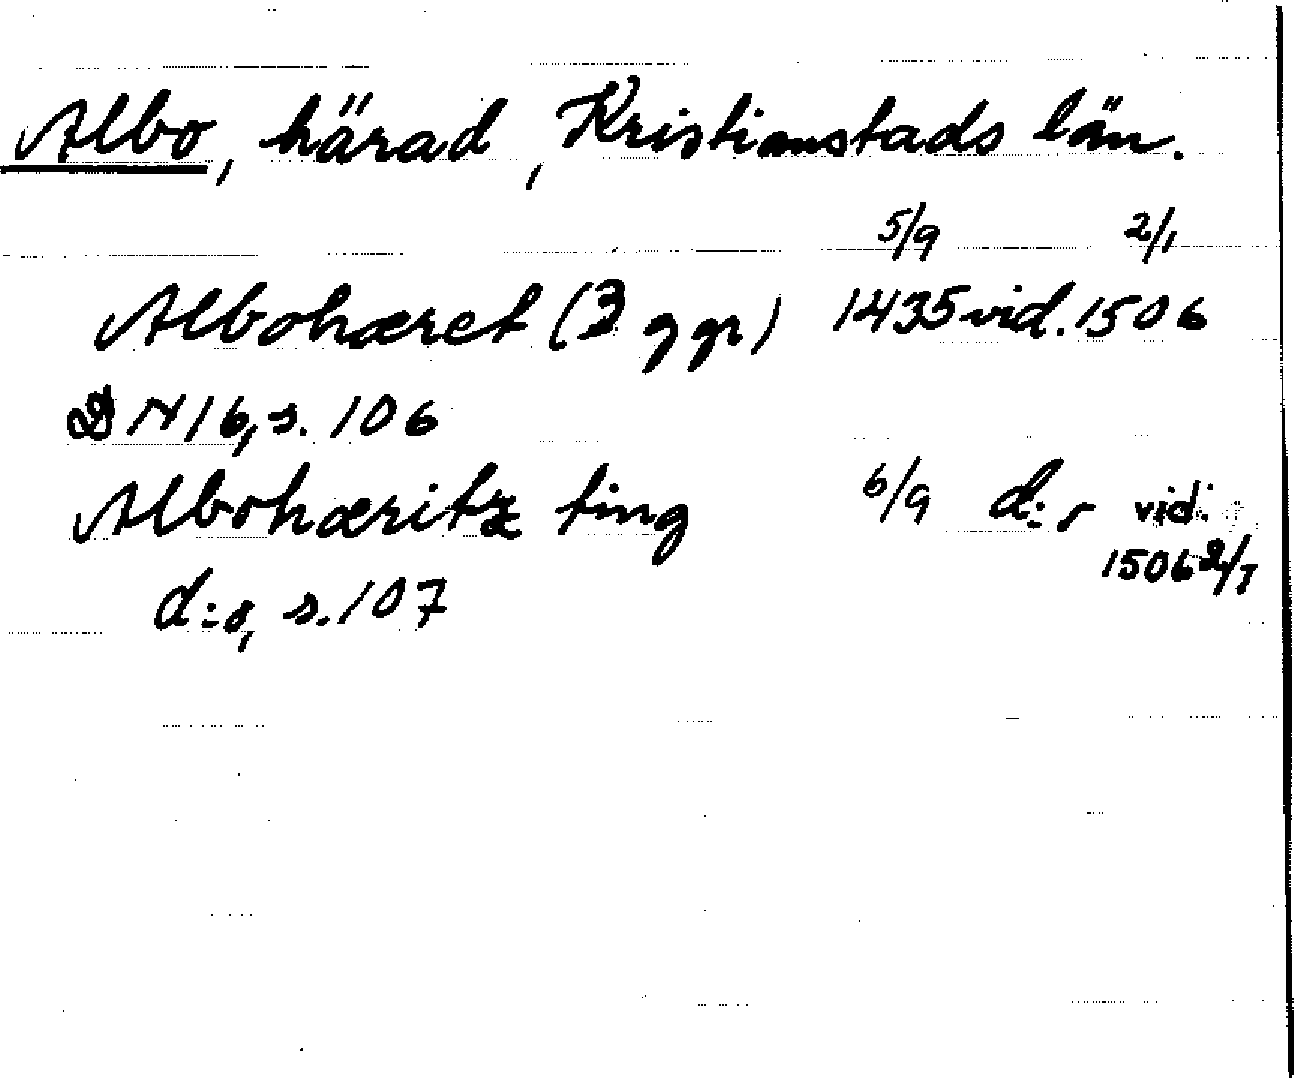 Albo, härad, Kristianstads län.
5/9 2/1
Albohæret (3 ggr) 1435 vid. 1506
DN 16, s. 106
Albohæritz ting 6/9 d:o vid.
1506 2/1
d:o, s. 107